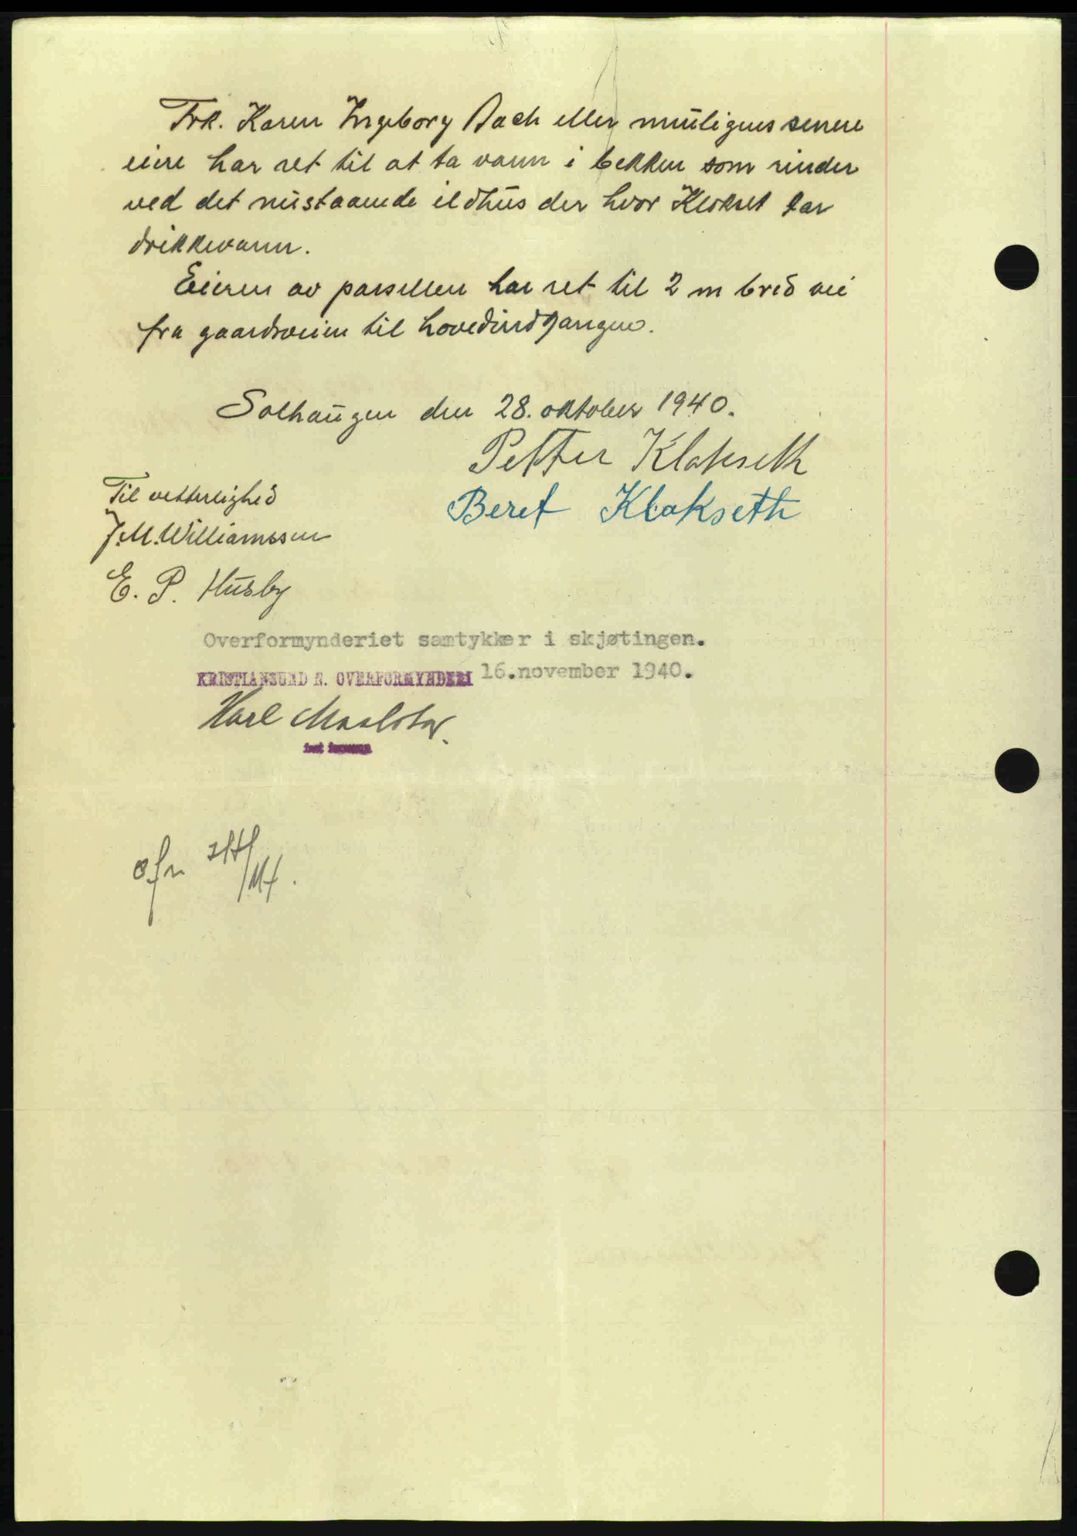 Frk. Karen Ingeborg Bach eller muuligens senere
eiere har ret til at ta vann i bekken som rinder
ved det nustaaende ildhus der hvor Klokset tar
drikkevann.
Eieren av parsellen har ret til 2 m bred vei
fra gaardsveien til hovedindgangen.
Solhaugen den 28. oktober 1940.
Petter Klakseth
Beret Klakseth
Til vetterlighed
J.M. Williamssen
E. P. Husby
Overformynderiet samtykker i skjøtingen.
KRISTIANSUND N. OVERFORMYNDERI 16.november 1940.
Karl